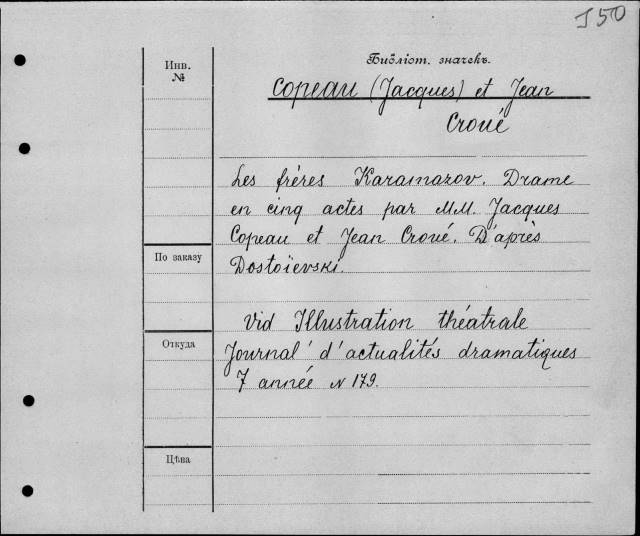 J50
Инв.
№
Библіот. значекъ.
Copeau (Jacques) et Jean
Croué
Les frères Karamazov. Drame
en cinq actes par MM. Jacques
Copeau et Jean Croué. D'après
Dostoïevski.
По заказу
Vid Illustration théatrale
Откуда
Journal d'actualités dramatiques
7 année N 179.
Цѣна